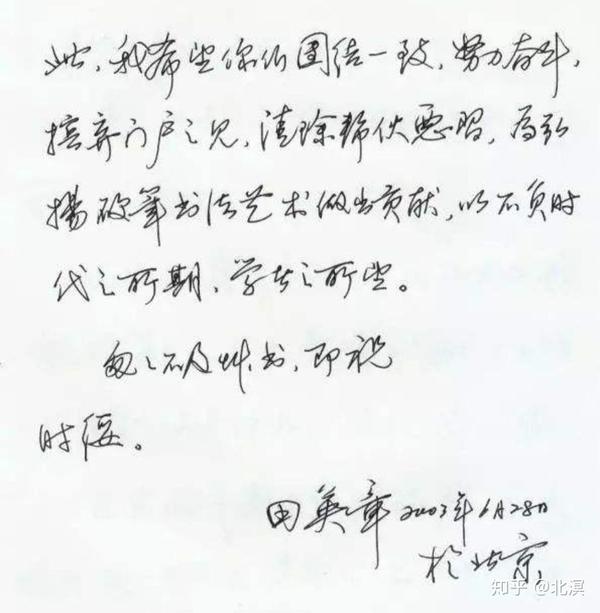 此，我希望你们团结一致，努力奋斗，
摈弃门户之见，清除帮伙恶习，为弘
揚硬筆书法艺术做出贡献，以不负时
代之所期，学长之所望。
匆匆不及草书，即祝
时绥。
田英章2003年6月28日
於北京
知乎 @北溟